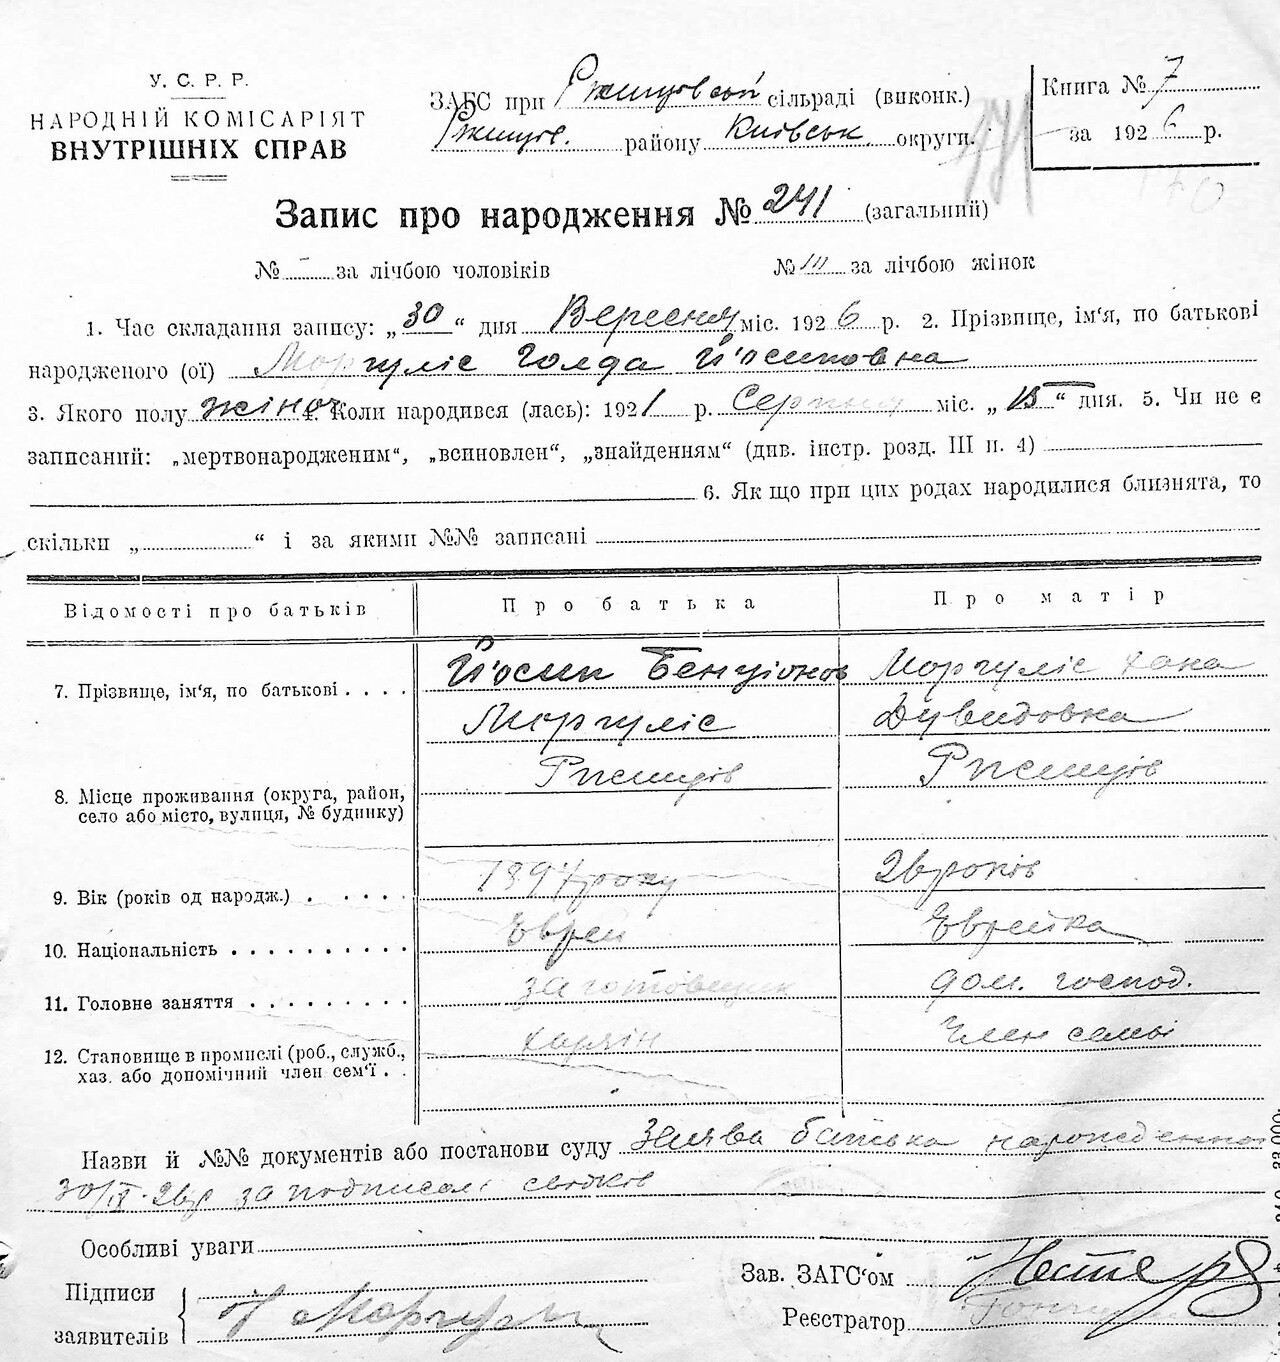 У. С. Р. Р.
НАРОДНІЙ КОМІСАРІЯТ
ВНУТРІШНІХ СПРАВ
ЗАГС при Ржищовской сільраді (виконк.)
Ржищів. району Київськ. округи.
Книга № 7
за 1926 р.
Запис про народження № 241 (загальний)
№ – за лічбою чоловіків № 111 за лічбою жінок
1. Час складання запису: „30“ дня Вересня міс. 1926 р. 2. Прізвище, ім'я, по батькові
народженого (ої) Моргуліс Голда Й'осиповна
3. Якого полу жіноч. 4. Коли народився (лась): 1921 р. Серпня міс. „15“ дня. 5. Чи не є
записаний: „мертвонародженим“, „вспновлен“, „знайденням“ (див. інстр. розд. III п. 4)
6. Як що при цих родах народилися близнята, то
скільки „ “ і за якими №№ записані
Відомості про батьків Про батька Про матір
7. Прізвище, ім'я, по батькові . . . . Й'осип Бенціонов Моргуліс Хана
Моргуліс Дувидовна
8. Місце проживання (округа, район, село або місто, вулиця, № будинку) Ржищів Ржищів
9. Вік (років од народж.) . . . . . 1894 року 26 років
10. Національність . . . . . . . . . . Еврей Еврейка
11. Головне заняття . . . . . . . . . заготовщик дом. господ.
12. Становище в промислі (роб., служб., хаз. або допомічний член сем'ї . . Член семьі
Назви й №№ документів або постанови суду Заява батька народженної
30/IX-26р за подписом свідків
Особливі уваги
Підписи
заявителів Моргуліс
Зав. ЗАГС'ом
Реєстратор